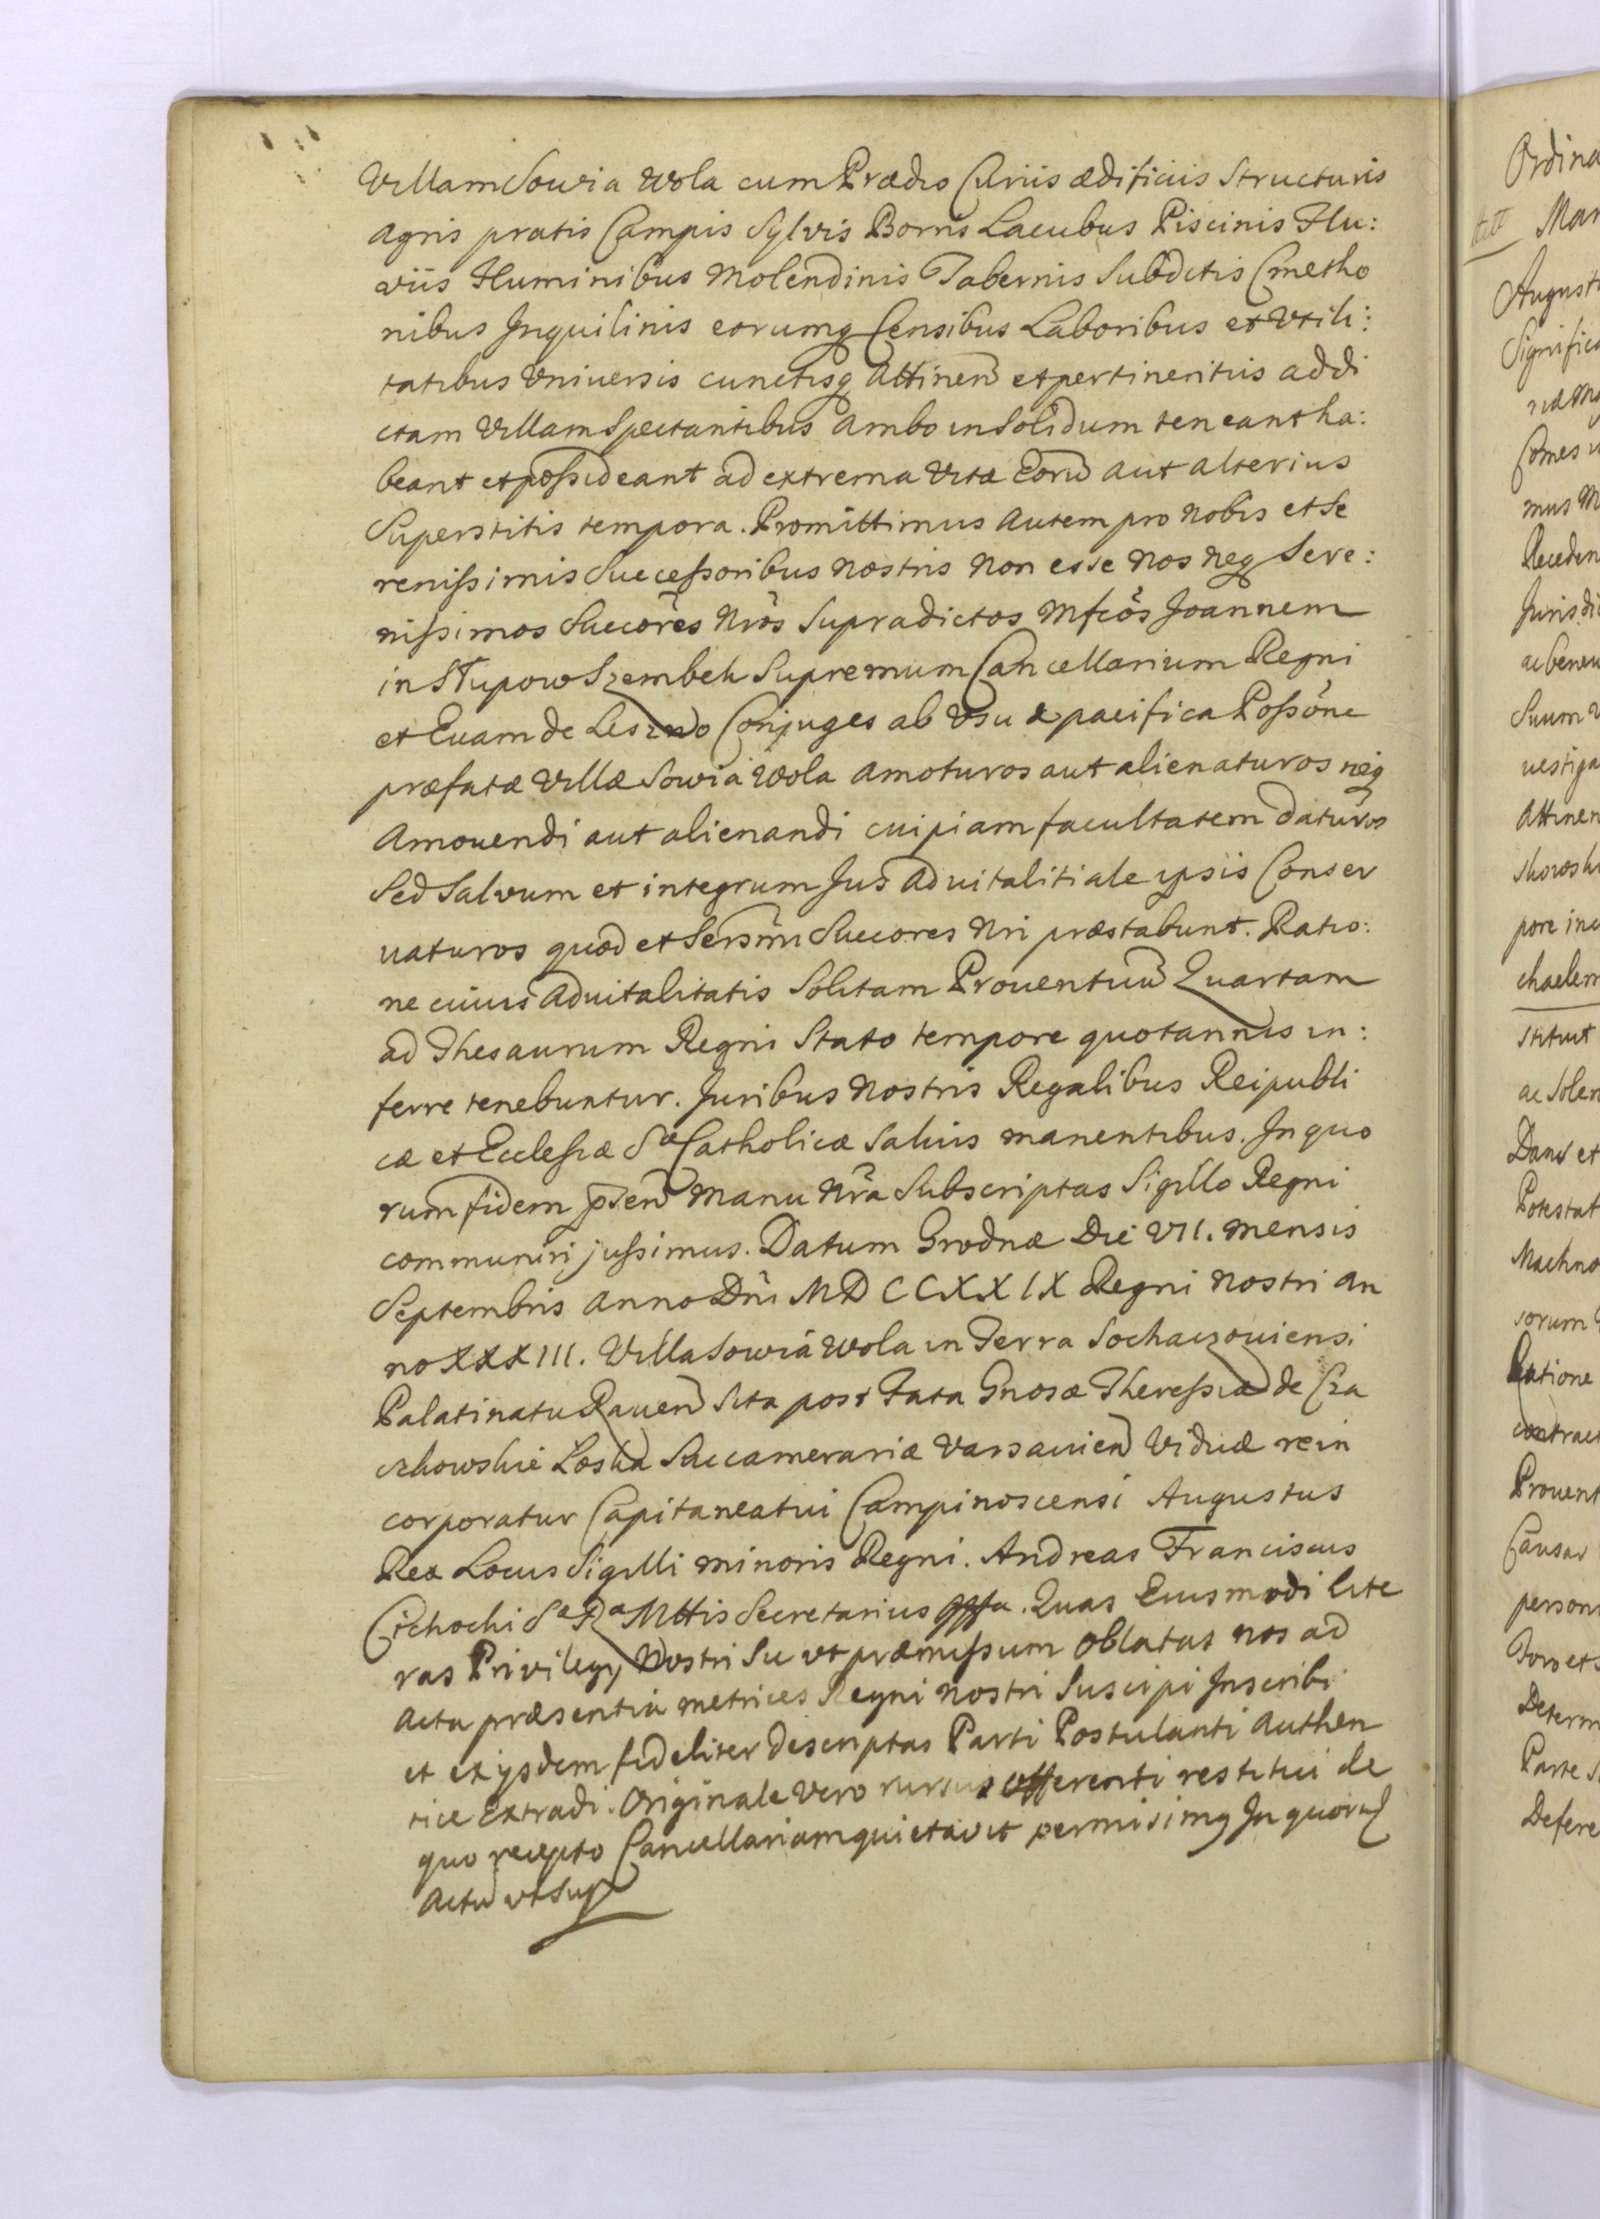 Villam Sowia Wola cum Prædio Curiis ædificiis Structuris
Agris pratis Campis Sylvis Borris Lacubus Piscinis Flu:
viis Fluminibus Molendinis Tabernis Subditis Cmetho
nibus Inquilinis eorumq Censibus Laboribus et Vtili:
tatibus Vniuersis cunctisq Attinen et pertinentiis ad di
ctam Villam Spectantibus Ambo in Solidum teneant ha:
beant et possideant ad extrema Vitæ Eorū aut alterius
Superstitis tempora. Promittimus Autem pro Nobis et Se
renissimis Successoribus Nostris Non esse Nos Neq Sere:
nissimos Succōres Nrōs Supradictos Mfcōs Joannem
in Słupow Szembek Supremum Cancellarium Regni
et Euam de Leszno Conjuges ab Vsu & pacifica Possōne
præfatæ Villæ Sowia Wola Amoturos aut alienaturos neq
Amouendi aut alienandi cuipiam facultatem daturos
Sed Salvum et integrum Jus Aduitalitiale ipsis Conser
uaturos quod et Serssīmi Succores Nri præstabunt. Ratio:
ne cuius Aduitalitatis Solitam Prouentuū Quartam
ad Thesaurum Regni Stato tempore quotannis in:
ferre tenebuntur. Juribus Nostris Regalibus Reipubli
cæ et Ecclesiæ Sæ Catholicæ Salvis manentibus. In quo
rum fidem p̄sen Manu Nrā Subscriptas Sigillo Regni
communiri jussimus. Datum Grodnæ Die VII. Mensis
Septembris Anno Dni MDCCXXIX Regni Nostri An
no XXXIII. Villa Sowia Wola in Terra Sochaczouiensi
Palatinatu Rauen Sita post Fata Gnosæ Theressiæ de Cza
czkowskie Łoska Succamerariæ Varsauien Viduæ rein
corporatur Capitaneatui Campinoscensi Augustus
Rex Locus Sigilli minoris Regni. Andreas Franciscus
Cichocki Sa Ra Mttis Secretarius. Quas Eiusmodi Lite
ras Privilegy Nostri Sic vt præmissum Oblatas nos ad
Acta præsentia metrices Regni Nostri Suscipi Inscribi
et ex ijsdem fideliter descriptas Parti Postulanti Authen
tice Extradi. Originale Vero rursus offerenti restitui de
quo recepto Cancellariam quietavit permisimq In quorū
Actū vt Supr